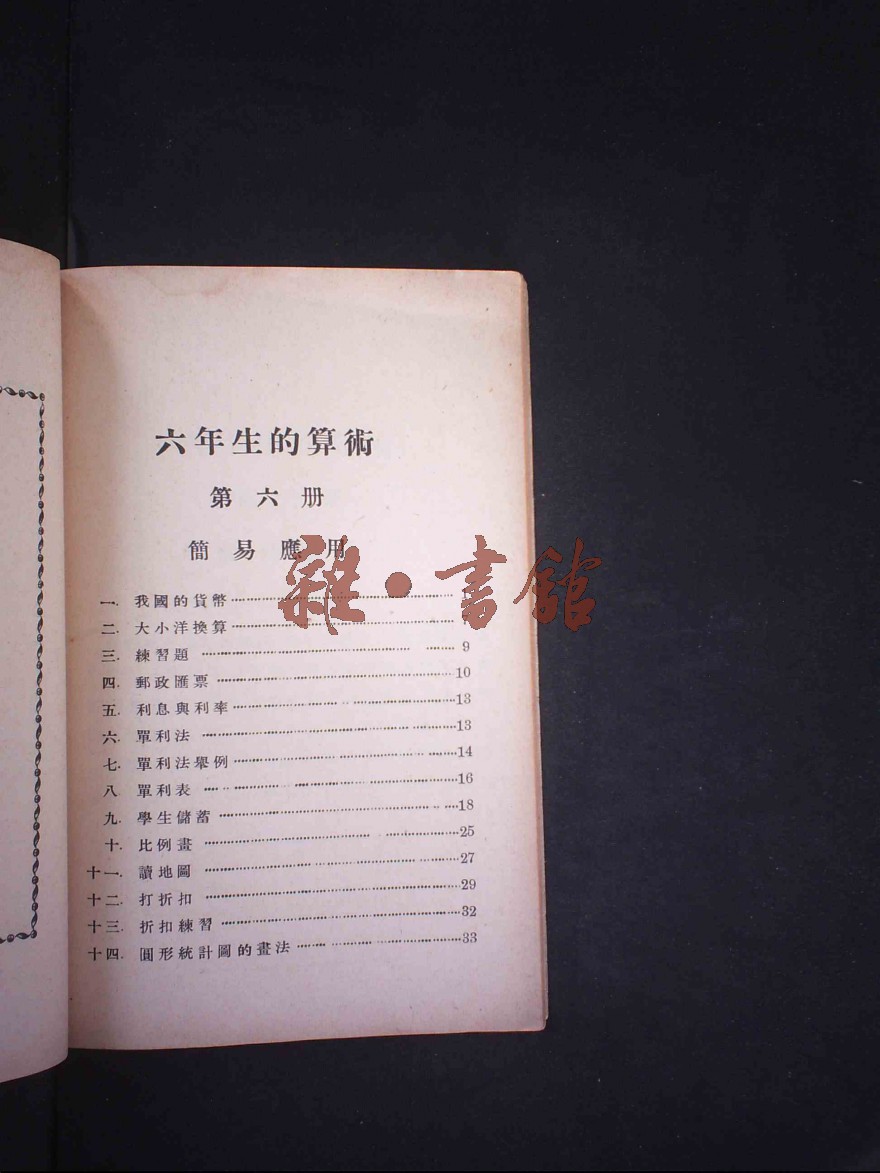 六年生的算術
第六册
簡易應用
雜·書館
一. 我國的貨幣
二. 大小洋換算
三. 練習題 9
四. 郵政匯票 10
五. 利息與利率 13
六. 單利法 13
七. 單利法舉例 14
八 單利表 16
九. 學生儲蓄 18
十. 比例畫 25
十一. 讀地圖 27
十二. 打折扣 29
十三. 折扣練習 32
十四. 圓形統計圖的畫法 33